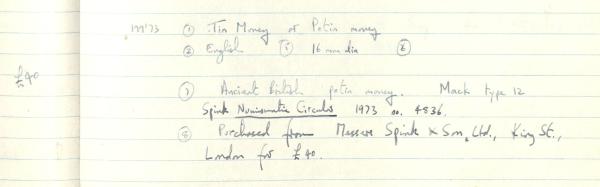 199'73 ① Tin Money or Potin money
② English ⓘ 16 mm dia ②
£40
③ Ancient British potin money. Mack type 12
Spink Numismatic Circular 1973 no. 4836.
④ Purchased from Messrs Spink & Son, Ltd., King St.,
London for £40.